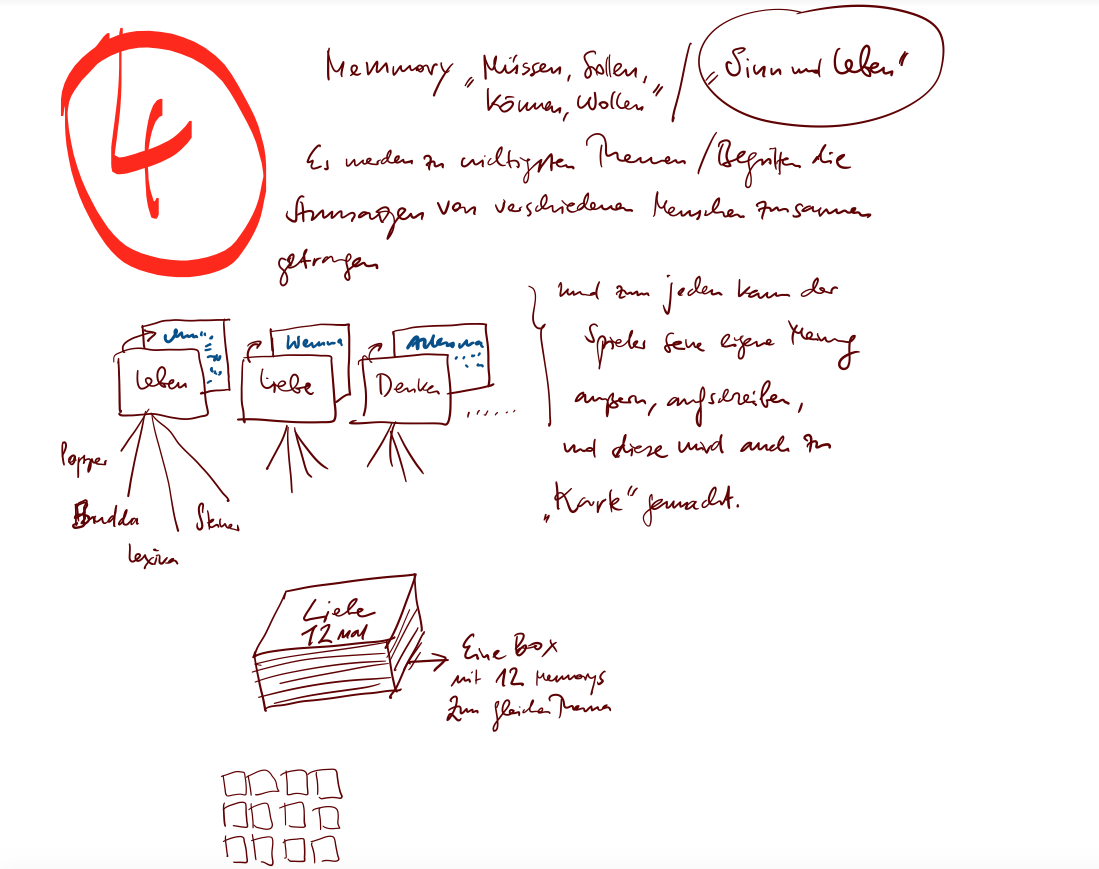 4
Memmory „Müssen, Sollen, / „Sinn und Leben"
Können, Wollen"
Es werden zu wichtigsten Themen / Begriffen die
Aussagen von verschiedenen Menschen zusammen
getragen
und zum jeden kann der
Spieler seine eigene Meinung
äußern, aufschreiben,
und diese wird auch zu
„Karte" gemacht.
Leben
Liebe
Denken
......
Popper
Budda
Steiner
Lexika
Liebe
12 mal
Eine Box
mit 12 Memorys
Zum gleichen Thema